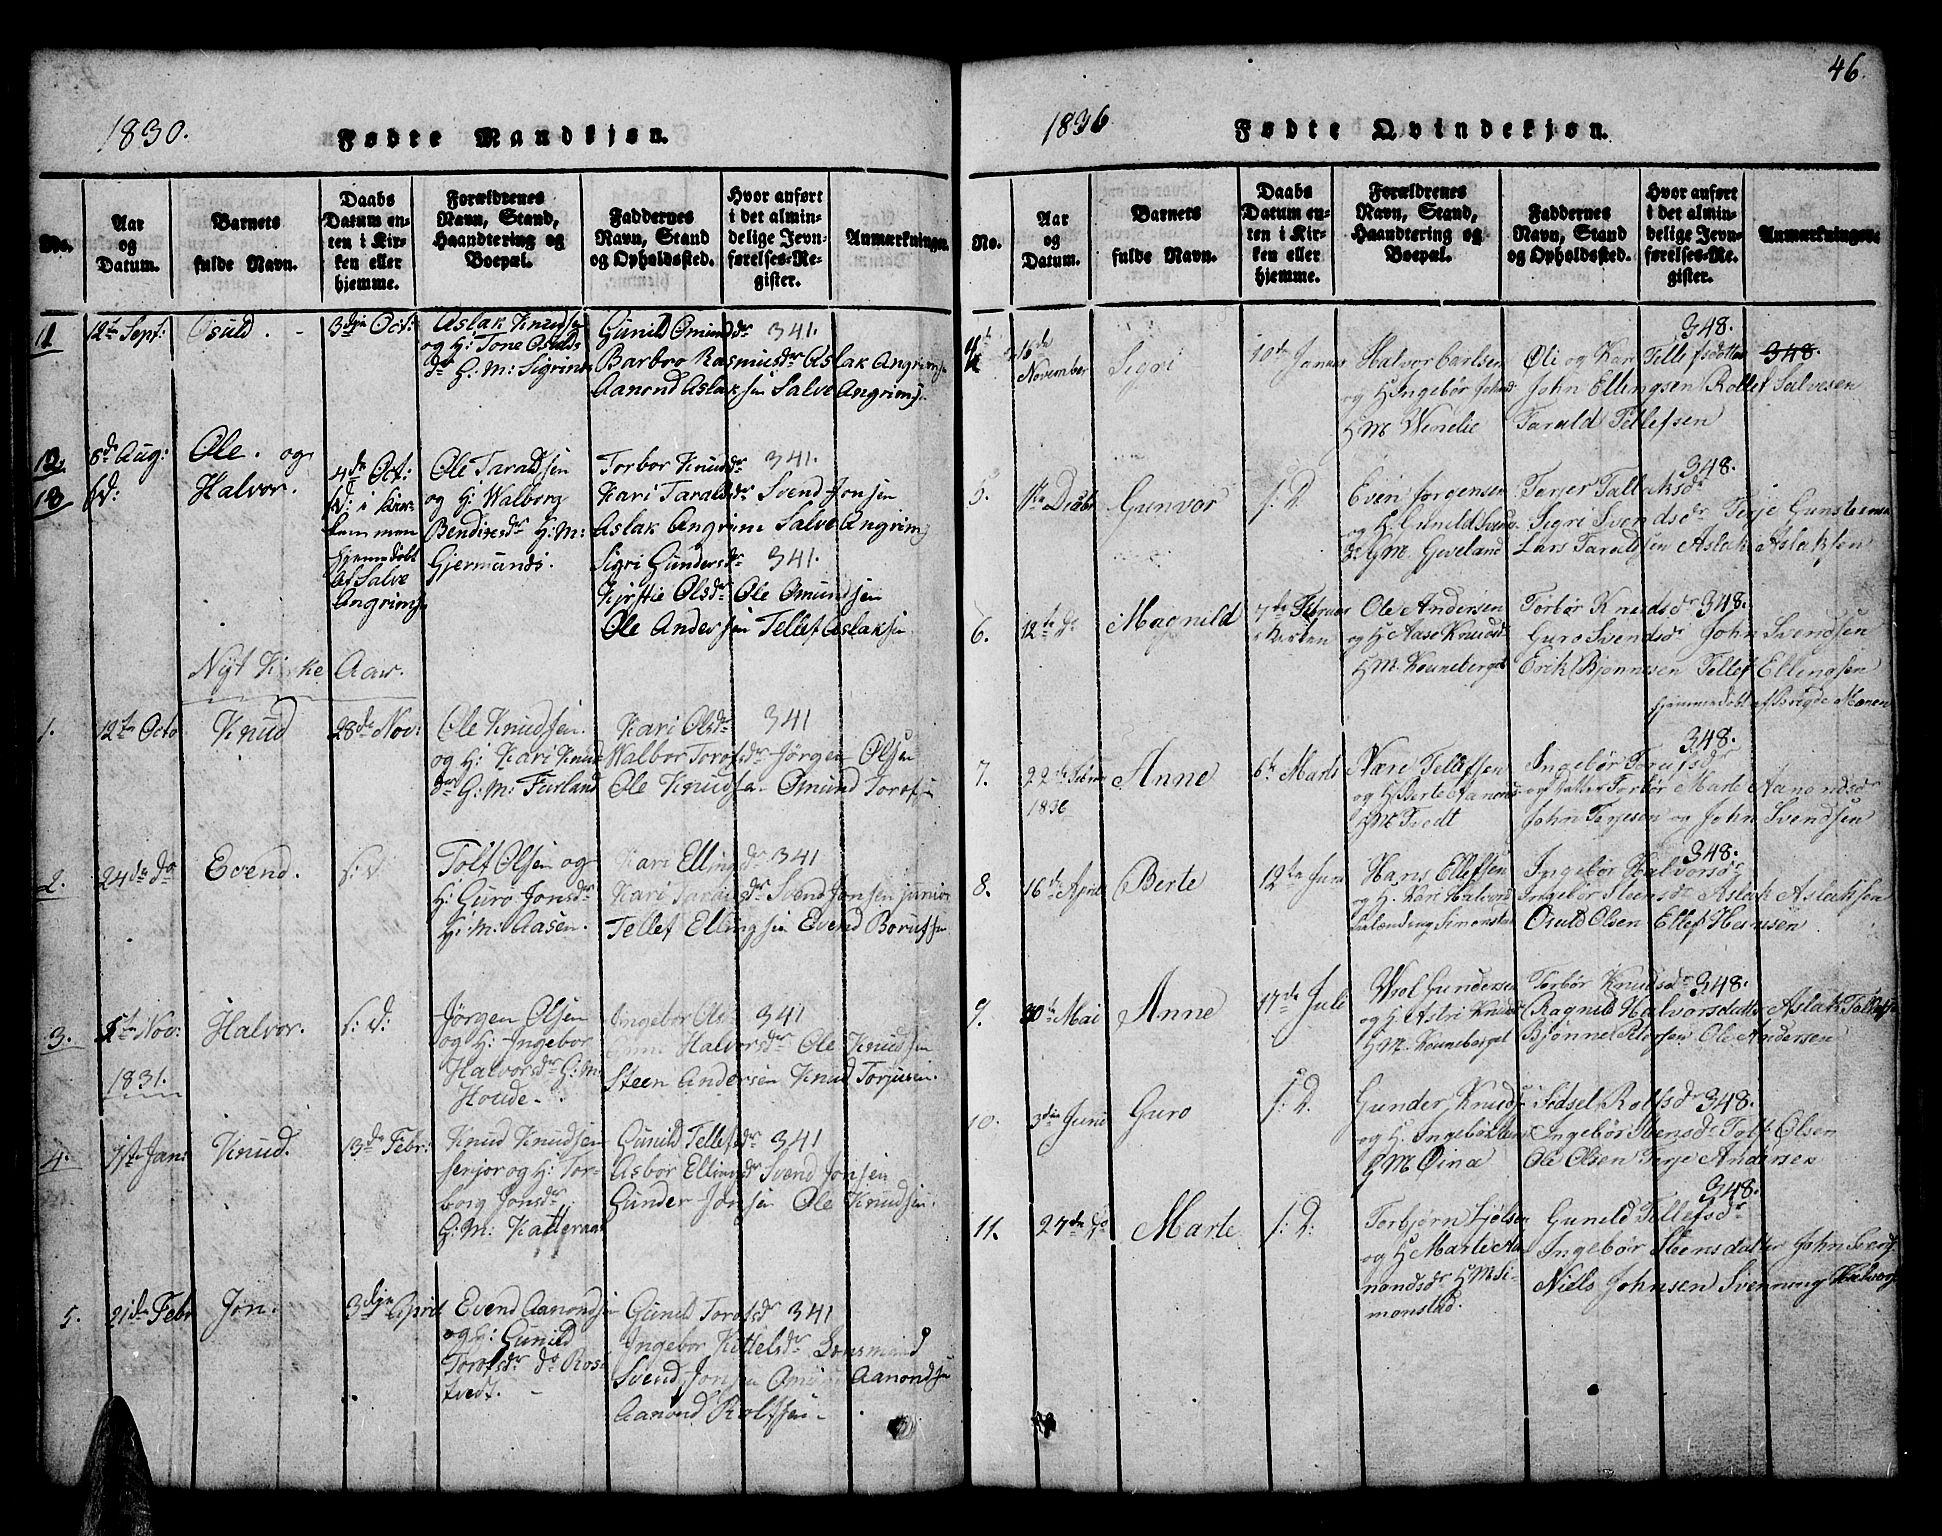 46.
1830.
Fødte Mandkjøn.
No.
Aar og Datum.
Barnets fulde Navn.
Daabs Datum enten i Kirken eller hjemme.
Forældrenes Navn, Stand, Haandtering og Boepæl.
Faddernes Navn, Stand og Opholdssted.
Hvor anført i det almindelige Jevnførelses-Register.
Anmærkninger.
11
12te Sept:
Osuld.
3die Oct:
Aslak Knudsen
og H: Tone Osulds
dr G: M:
Gunild Omundsdr 341.
Barbro Rasmusdr Aslak Angrimsen
Aanond Aslaksen Salve Angrimsen
12.
13
8de Aug:
Ole. og
Halvor.
4de Oct:
i Kir-
ken men
hjemmedøbt
af Salve
Angrimsen
Ole Taraldsen
og H: Walborg
Bendixsdr G: M:
Gjermunds.
Torbor Knudsdr 341.
Kari Taraldsdr Svend Jonsen
Aslak Angrimsen Salve Angrimsen
Sigri Gundersdr 341.
Kirstie Olsdr Ole Omundsen
Ole Andersen Tellef Aslaksen
Nyt Kirke Aar.
1.
12te Octo
Knud
28de Nov:
Ole Knudsen.
og H: Kari Knuds
dr G: M: Furland
Kari Olsdr 341
Walbor Torofsdr Jørgen Olsen
Ole Knudsen Omund Torofsen
2.
24de do
Evend.
s: D:
Tolf Olsen og
H: Guro Jonsdr
G: M: Aasen.
Kari Ellingsdr 341
Kari Taraldsdr Svend Jonsen junior
Tellef Ellingsen Evend Borufsen
3.
5te Nov:
Halvor.
s: D:
Jørgen Olsen
og H: Ingebor
Halvorsdr G: M:
Houde.
Ingebor Olsdr 341
Halvorsdr Ole Knudsen
Steen Andersen Knud Torjusen.
1831.
4.
1ste Jan:
Knud.
13de Febr:
Knud Knudsen
senjor og H: Tor-
borg Jonsdr
G: M: Katteraas
Gunild Tellefsdr 341
Asbor Ellingsdr Svend Jonsen
Gunder Jonsen Ole Knudsen.
5.
21de Febr
Jon.
3die April
Evend Aanondsen
og H: Gunild
Torofsdr do Ros-
tvedt.
Gunild Torofsdr 341
Ingebor Kittelsdr
Svend Jonsen Aanondsen
Aanond Rolfsen
1836
Fødte Qvindekjøn.
No.
Aar og Datum.
Barnets fulde Navn.
Daabs Datum enten i Kirken eller hjemme.
Forældrenes Navn, Stand, Haandtering og Boepæl.
Faddernes Navn, Stand og Opholdssted.
Hvor anført i det almindelige Jevnførelses-Register.
Anmærkninger.
November
Sigri
10de Januar
Halvor Carlsen
og H Ingebør
348.
Oli og Kari Tellefsdotter 348.
John Ellingsen Rollef Salvesen
Tarald Tellefsen
5.
Gunvor
s: D.
Even Jørgensen
og H. Gunild Svends
dr GM. Geveland
348.
Terjer Tallaksdr
Sigri Svendsdr Terje Gunstensen
Lars Taraldsen Aslak Aslaksen
6.
12te do
Magnild
7de Februar
i Kirken
Ole Andersen
og H Aase Knudsdr
GM. Kouneberget
Torbør Knudsdr 348.
Guro Svendsdr John Svendsen
Erik Bjønnesen Tellef Ellingsen
7.
1836
Anne
6te Marts
Nære Tellefsen
GM Tvedt
348.
Ingebør Torufsdr
og Datter Torbør Marte Aanondsdr
John Terjesen og John Svendsen
8.
16de April
Berte
12te Juni
Hans Ellefsen
og H. Kari Halvorsdr
348.
Ingebør Halvorsdr
Ingebør Steensdr Aslak Aslaksen
Osuld Olsen Ellef Hansen
9.
30te Mai
Anne
17de Juli
Wrol Gundersen
og H. Astri Knudsdr
GM. Kouneberget
Torbør Knudsdr 348.
Ragnild Halvorsdatter Aslak
Bjønne Petersen Ole Andersen
10.
3die Juni
Guro
s: D.
Gunder Knudsen
og H. Ingebør
GM Øinæ
Sidsel Rolfsdr 348.
Ingebør Stensdr Tolf Olsen
Ole Olsen Terje Andersen
11.
27de do
Marte
s: D:
Torbjørn
og H Marte Aa-
nondsdr GM Si-
monstad.
348.
Guneld Tellefsdr
Ingebør Stensdatter John
Niels Johnsen Svennung